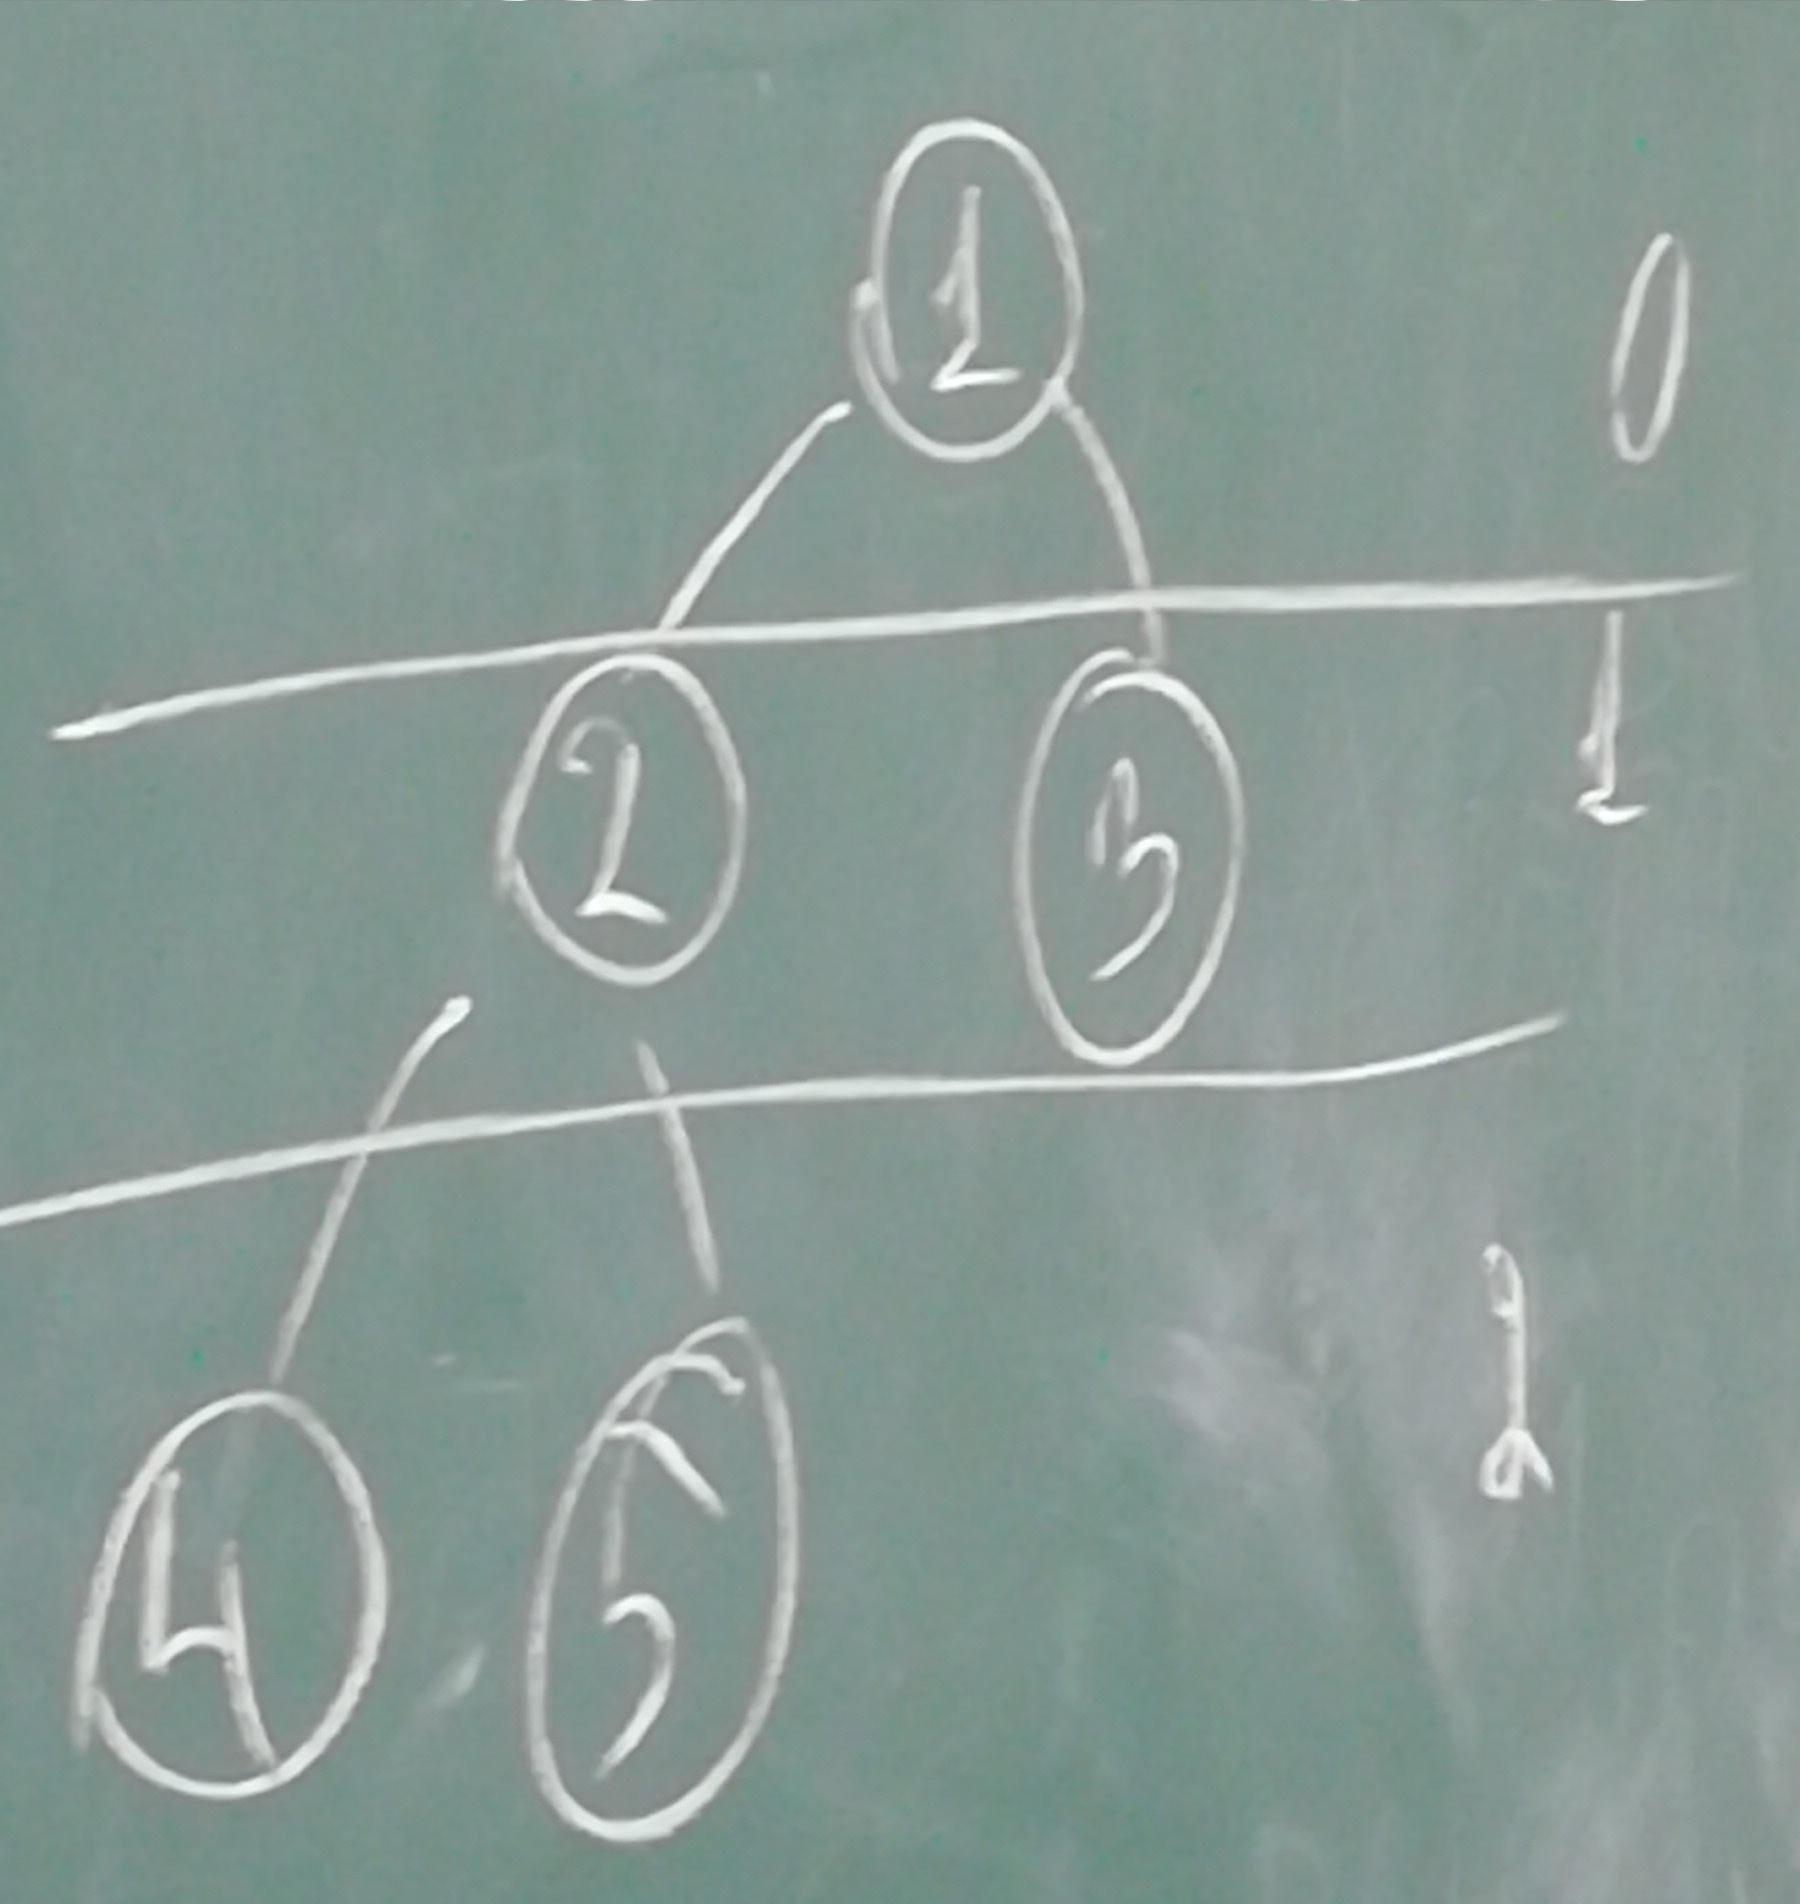 1 0
2 3 1
4 5 2